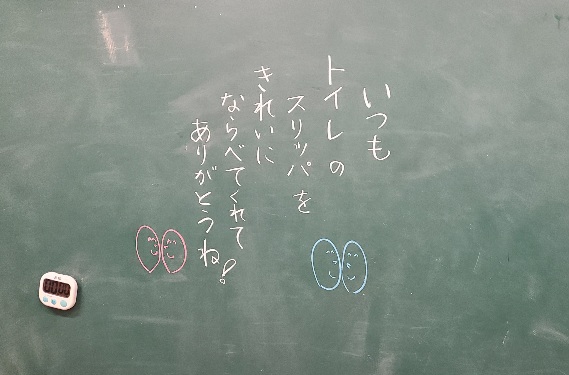 いつも
トイレの
スリッパを
きれいに
ならべてくれて
ありがとうね!